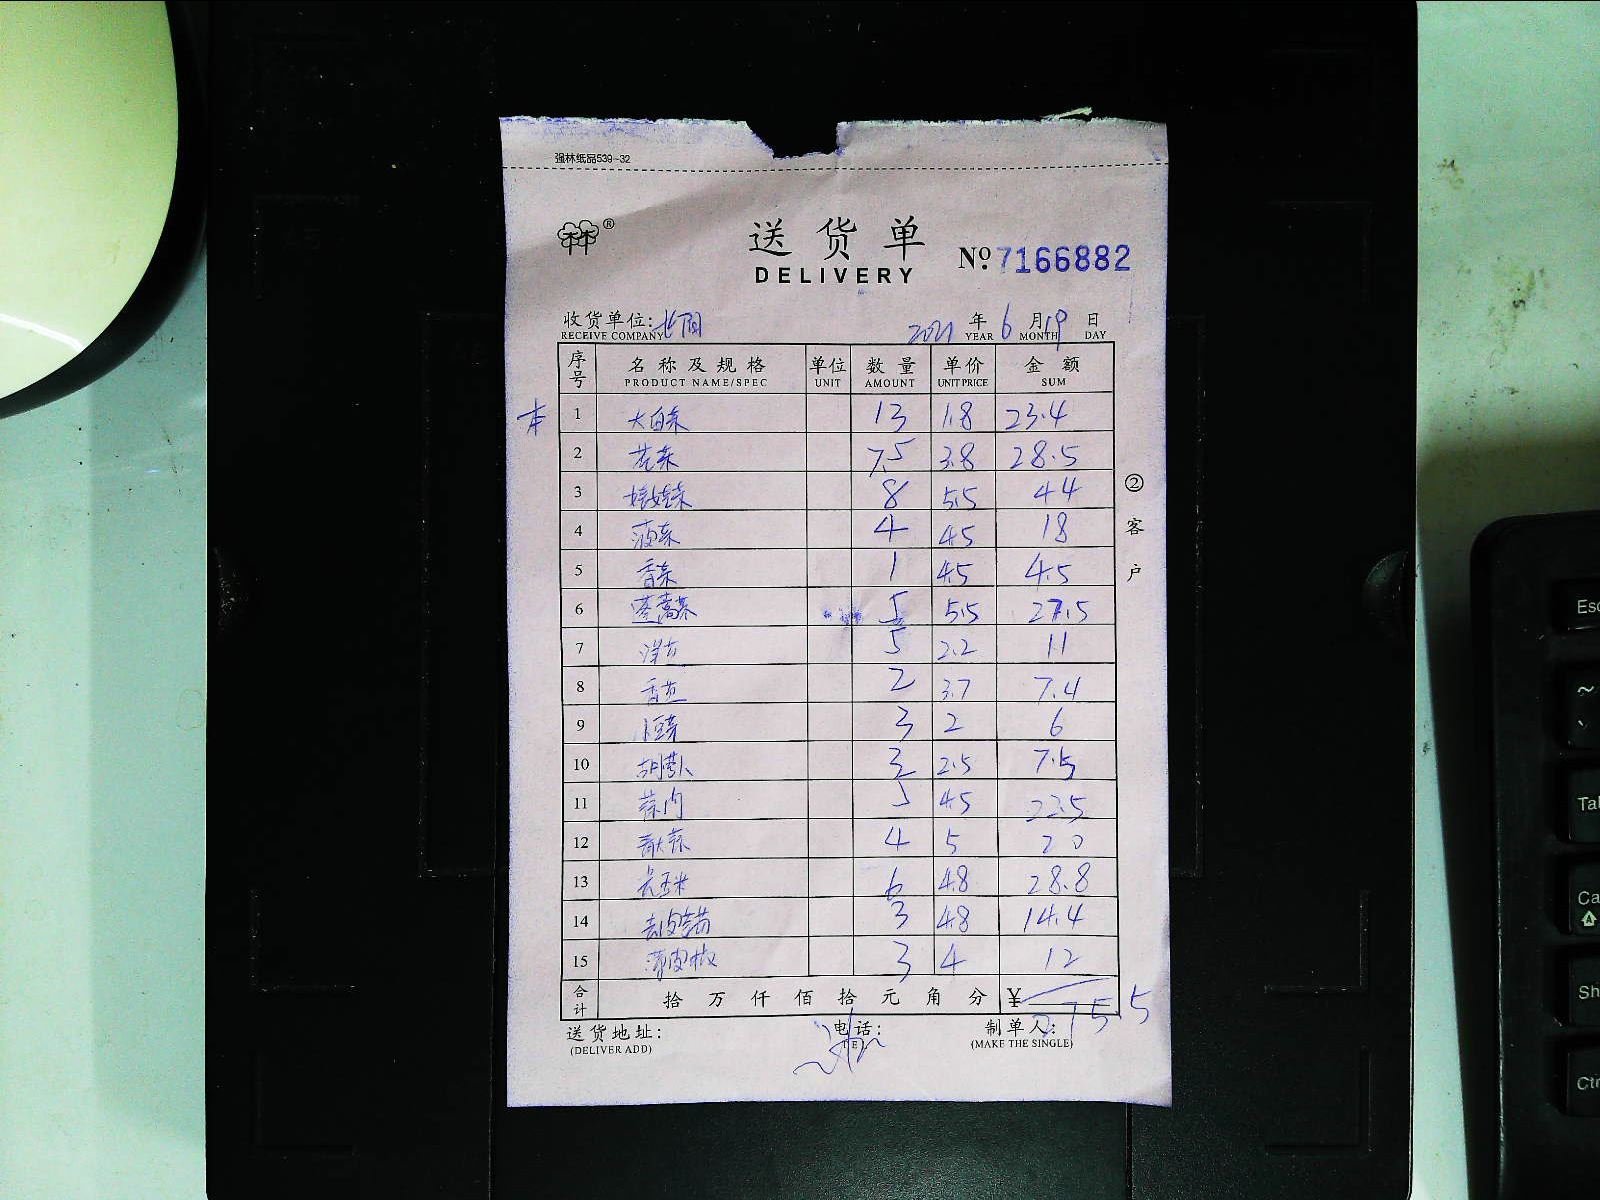 强林纸品539-32
®
送货单
DELIVERY
No. 7166882
收货单位:
2021 年 6 月 19 日
RECEIVE COMPANY YEAR MONTH DAY
序号 名称及规格 单位 数量 单价 金额
PRODUCT NAME/SPEC UNIT AMOUNT UNIT PRICE SUM
本 1 大白菜 13 1.8 23.4
2 花菜 7.5 3.8 28.5
3 娃娃菜 8 5.5 44
4 菠菜 4 4.5 18
5 香菜 1 4.5 4.5
6 茼蒿菜 5 5.5 27.5
7 洋古 5 2.2 11
8 香芷 2 3.7 7.4
9 小豆芽 3 2 6
10 胡萝卜 3 2.5 7.5
11 蒜肉 5 4.5 22.5
12 4 5 20
13 长玉米 6 4.8 28.8
14 去皮莴苣 3 4.8 14.4
15 薄皮椒 3 4 12
合计 拾万仟佰拾元角分 ¥ 275.5
送货地址: 电话: 制单人:
(DELIVER ADD) (TEL) (MAKE THE SINGLE)
②客户
Esc
~
Tab
Ca
Sh
Ctr